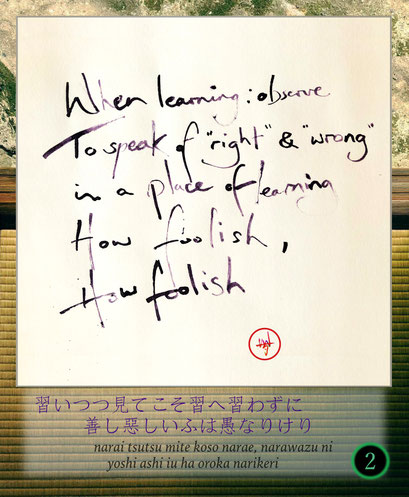 When learning: observe
To speak of "right" & "wrong"
in a place of learning
How foolish,
How foolish
習いつつ見てこそ習へ習わずに
善し悪しいふは愚なりけり
narai tsutsu mite koso narae, narawazu ni
yoshi ashi iu ha oroka narikeri
2